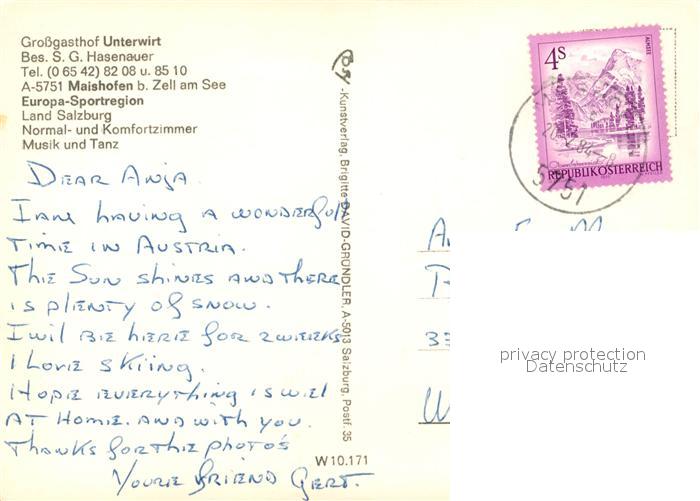 Großgasthof Unterwirt
Bes. S. G. Hasenauer
Tel. (0 65 42) 82 08 u. 85 10
A-5751 Maishofen b. Zell am See
Europa-Sportregion
Land Salzburg
Normal- und Komfortzimmer
Musik und Tanz
DEAR ANJA.
I AM HAVING A WONDERFUL
TIME IN AUSTRIA.
THE SUN SHINES AND THERE
IS PLENTY OF SNOW.
I WIL BE HERE FOR 2 WEEKS
I LOVE SKIING.
HOPE EVERYTHING IS WEL
AT HOME. AND WITH YOU.
THANKS FOR THE PHOTO'S
YOURE FRIEND GERT.
-Kunstverlag, Brigitte DAVID-GRÜNDLER, A-5013 Salzburg, Postf. 35
W 10.171
4S
ALMSEE
REPUBLIK ÖSTERREICH
5751
privacy protection
Datenschutz